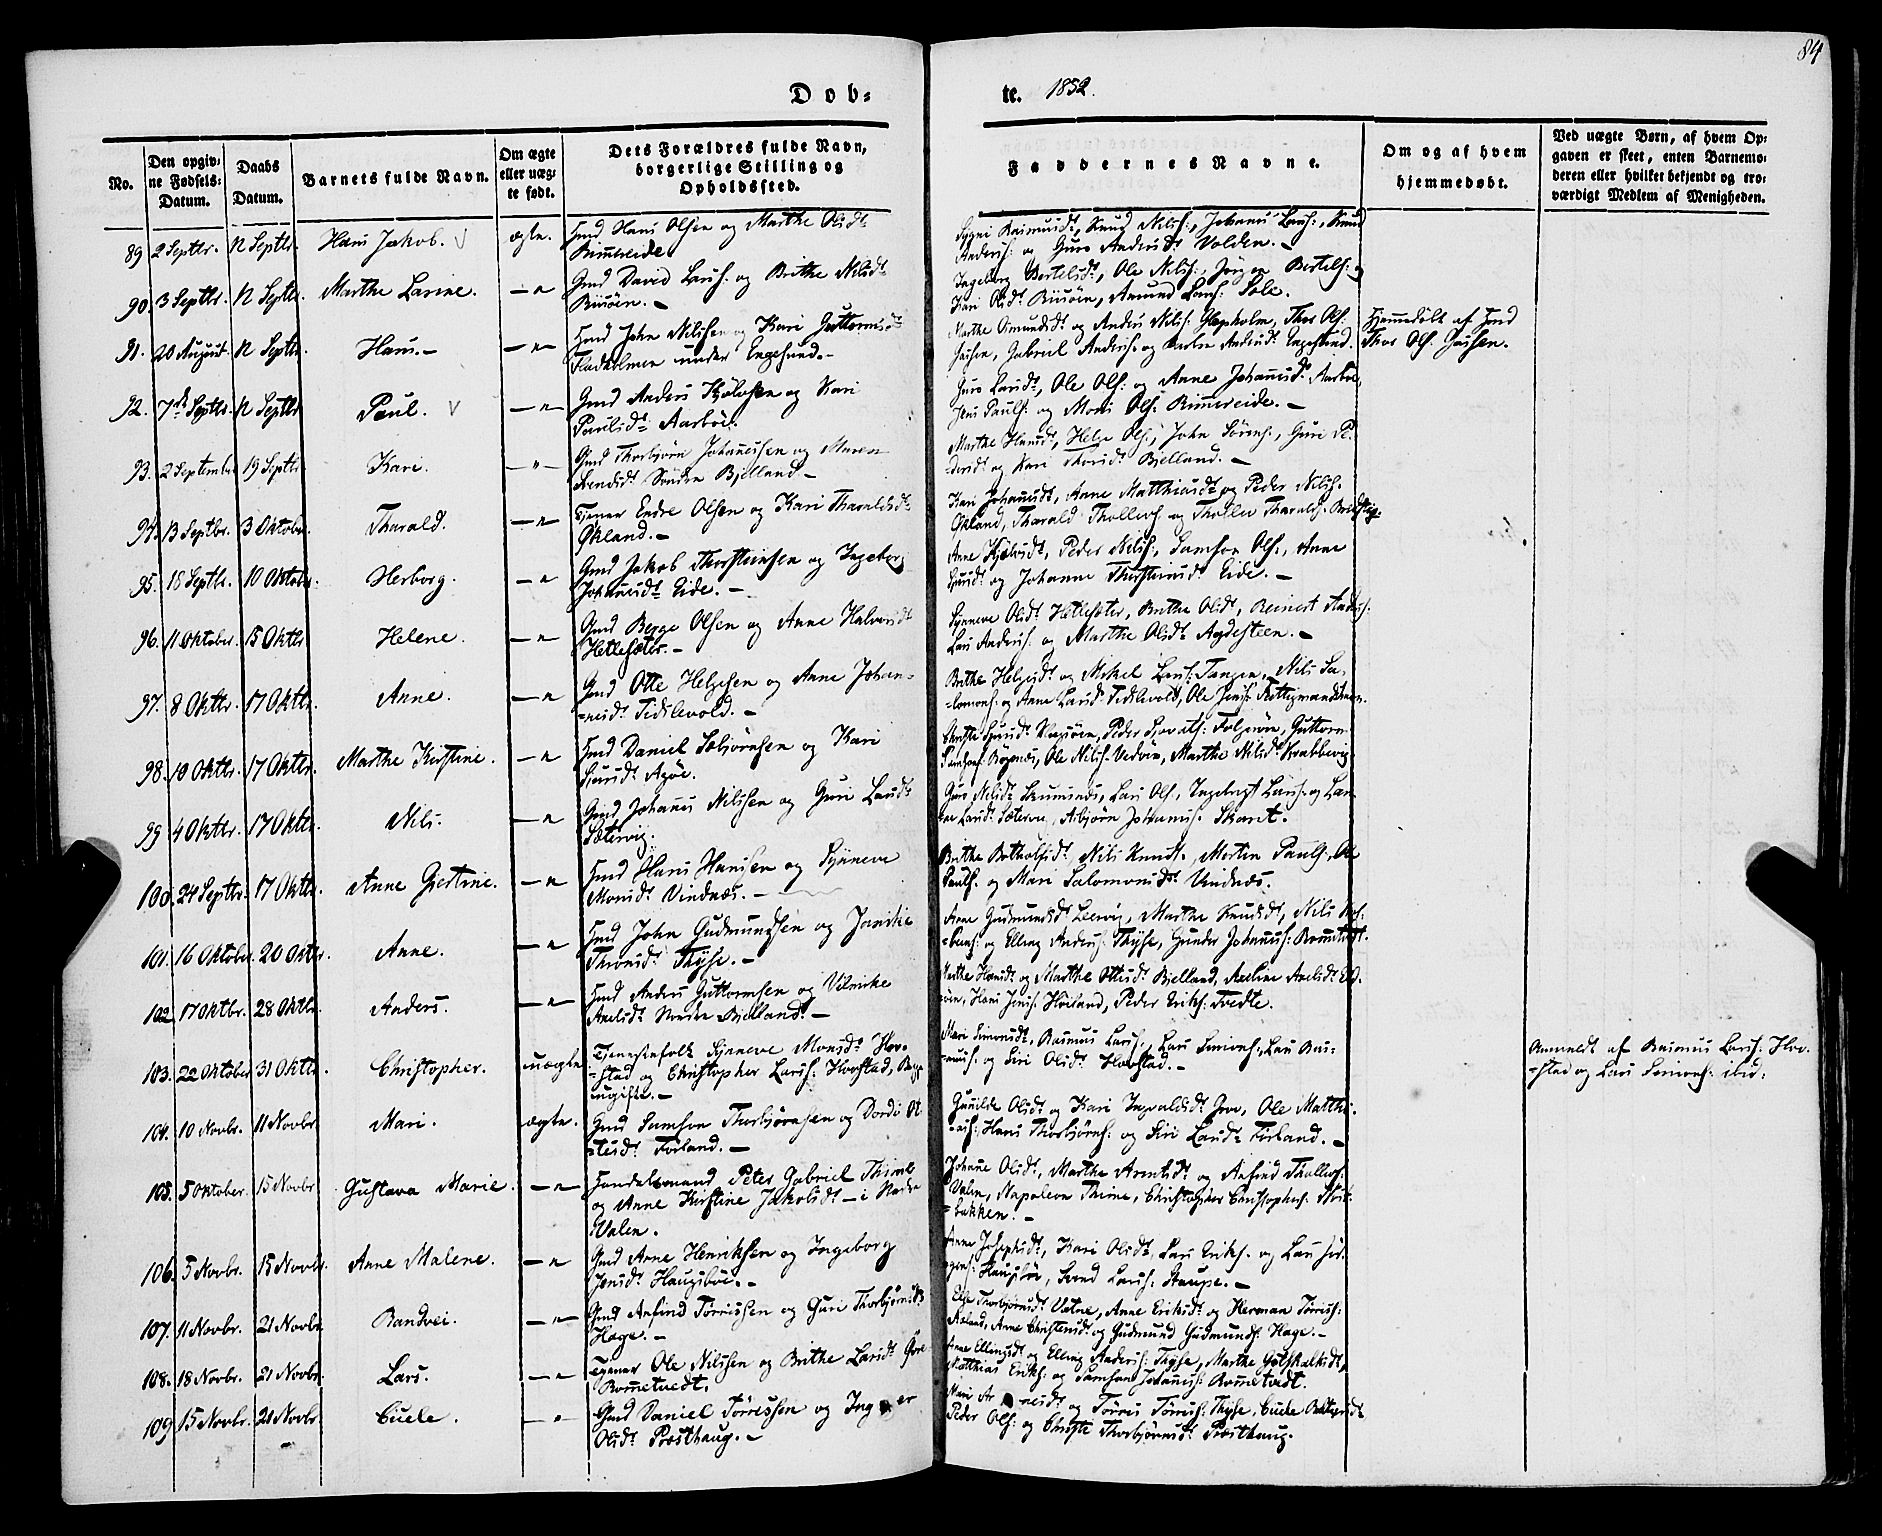 84
Døb-
te. 1852.
No.
Den opgiv-
ne Fødsels-
Datum.
Daabs
Datum.
Barnets fulde Navn.
Om ægte
eller uæg-
te født.
Dets Forældres fulde Navn,
borgerlige Stilling og
Opholdssted.
Faddernes Navne.
Om og af hvem
hjemmedøbt.
Ved uægte Børn, af hvem Op-
gaven er skeet, enten Barnemo-
deren eller hvilket bekjendt og tro-
værdigt Medlem af Menigheden.
89 2 Septbr. 12 Septbr. Hans Jakob. ægte. Hans Olsen og Marthe Olsdt
Rimmereide
Rasmusdt, Knud Nils:, Johannes Lars:, Knud
Anders: og Guro Andersdt Volden. -
90. 3 Septbr. 12 Septbr. Marthe Larine. -"- Gmd David Lars: og Brithe Nilsdt
Riisøen. -
Ingeborg Bertelsdt, Ole Nils:, Jørgen Bertels: og
Kari Olsdt Riisøen, Amund Lars: Sole.
91. 20 August 12 Septbr. Hans. - -"- John Nilsen og Kari Guttormsdt
Fladholmen under Engesund. -
Marthe Osmundsdt og Anders Nils: Glopholm, Thor Ols:
Gabriel Anders: og Andersdt Engesund.
Hjemmedøbt af
Thor Ols:
92. 7de Septbr. 12 Septbr. Paul. -"- Gmd Anders og Kari
Paulsdt Aarbøe.
Guro Larsdt, Ole Ols: og Anne Johannesdt Aarbøe,
Jens Pauls: og Mons Ols: Rimmereide. -
93. 2 September 19 Septbr. Kari. -"- Gmd Thorbjørn Johannessen og Maren
Svendsdt Søndre Bjelland -
Marthe Hansdt, Helge Ols:, John Sørens:, Guri Pe-
dersdt og Kari Bjelland. -
94. 13 Septbr. 3 Oktober Tharald. -"- Tjener Endre Olsen og Kari Tharaldsdt
Økland. -
Kari Johannesdt, Anne Matthiasdt og Peder Nils:
Økland, Tharald Thollevs: og Thollev Tharalds:
95. 18 Septbr. 10 Oktober. Herborg. -"- Gmd Jakob Thorsteinsen og Ingeborg
Johannesdt Eide. -
Anne Peder Nils:, Samson Ols:, Anne
og Johanne Thorsteinsdt Eide. -
96. 11 Oktober. 15 Oktbr Helene. -"- Gmd Berge Olsen og Anne Halvorsdt
Hetlesæter. -
Synneve Olsdt Hetlesæter, Brithe Olsdt, Reinert Anders:
Lars Anders: og Marthe Olsdt Agdesteen. -
97. 8 Oktbr. 17 Oktbr. Anne. -"- Gmd Otte Helgesen og Anne Johan-
-nesdt Tidslevold. -
Brithe Helgesdt og Mikel Lars: Tangen, Nils Sa-
-lomons: og Anne Larsdt Tidslevold, Ole Jens:
98. 10 Oktbr. 17 Oktbr. Marthe Kirstine. -"- Daniel og Kari
Agøe.
Peder Guttorm
Ole Nils: Vedøen, Marthe Nilsdt
99 4 Oktbr. 17 Oktbr. Nils. -"- Gmd Johannes Nilssen og Guri Larsdt
Sætervig.
Guro Nilsdt Lars Ols:, Ingebrigt Lars: og
Larsdt Asbjørn Johannes: Skaret.
100. 24 Septbr. 17 Oktbr. Anne Gjertine. -"- Hans Hansen og Synneve
Monsdt Vindnæs. -
Brithe Botholfsdt, Nils Knuds:, Morten Pauls:, Ole
Pauls: og Mari Salomonsdt Vindnæs.
101. 16 Oktober. 20 Oktbr. Anne. -"- John Gudmundsen og Jannike
Thyse. -
Anne Gudmundsdt Leervig, Marthe Knudsdt, Nils
og Elling Anders: Thyse, Gunder Johannes:
102. 17 Oktbr. 28 Oktbr. Anders. -"- Anders Guttormsen og Vilnicke
Axelsdt Nordre Bjelland. -
Marthe Hansdt og Marthe Ottesdt Bjelland, Axeline Axelsdt
Hans Jens: Høiland, Peder Eriks: Tvedte.
103. 22 Oktober 31 Oktbr. Christopher. uægte Tjenestefolk Synneve Monsdt Hov-
-stad og Christopher Lars: Hovstad, Begge
ugifte. -
Mari Simonsdt, Rasmus Lars:, Lars Simons:, Lars Ras-
-mus: og Siri Olsdt Hovstad. -
Anmeldt af Rasmus Lars: Hov-
-stad og Lars Simons: ibid:
104. 10 Novbr. 11 Novbr. Mari. ægte. Gmd Samson Thorbjørnsen og Dordi Ot-
-tesdt Førland. -
Gunilde Olsdt og Kari Ingvaldsdt Ole Matthi-
-as: Hans Thorbjørns: og Siri Larsdt Førland. -
105. 5 Oktober. 15 Novbr Gustava Marie. -"- Handelsmand Peter Gabriel Thime
og Anne Kirstine Jakobsdt - i Nedre
Valen.
Johanne Olsdt, Marthe Arentsdt og Anfind Thollevs:
Valen, Napoleon Thime, Christopher Christophers:
-bakken. -
106. 5 Novbr. 15 Novbr. Anne Malene. -"- Gmd Arne Henriksen og Ingeborg
Jensdt Haugsbøe. -
Anne Josephsdt, Kari Olsdt, Lars Eriks: og Lars Jør-
gens: Haugsbøe, Svend Lars: Staupe. -
107. 11 Novbr. 21 Novbr. Randvei. -"- Gmd Anfind Tørressen og Guri Thorbjørnsdt
Hage. -
Else Thorbjørnsdt Vatne, Anne Eriksdt og Herman Tørris:
Anne Christensdt og Gudmund Gudmunds: Hage. -
108. 18 Novbr. 21 Novbr. Lars. -"- Tjener Ole Nilssen og Brithe Larsdt
Rommetvedt.
Anne Ellingsdt og Elling Anders: Thyse, Marthe Gotskalksdt,
Matthias Eriks: og Samson Johannes: Rommetvedt.
109 15 Novbr. 21 Novbr. Cecele. -"- Gmd Daniel Tørressen og Inger
Olsdt Præsthaug. -
Mari og Tørris Tørris: Thyse, Cecele
Peder Ols: og Christe Thorbjørnsdt Præsthaug.